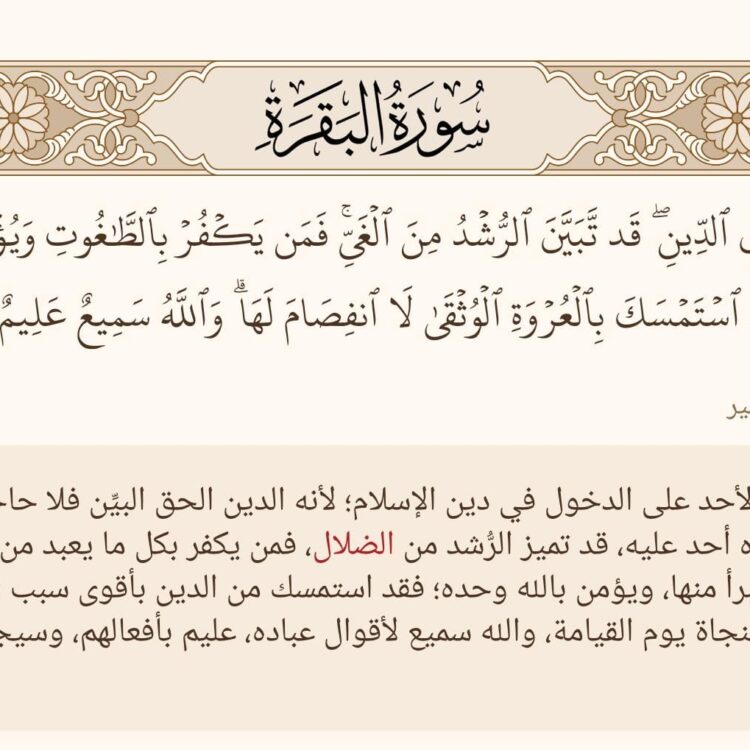 سُورَةُ البَقَرَةِ
ٱلدِّينِۖ قَد تَّبَيَّنَ ٱلرُّشۡدُ مِنَ ٱلۡغَيِّۚ فَمَن يَكۡفُرۡ بِٱلطَّٰغُوتِ
ٱسۡتَمۡسَكَ بِٱلۡعُرۡوَةِ ٱلۡوُثۡقَىٰ لَا ٱنفِصَامَ لَهَاۗ وَٱللَّهُ سَمِيعٌ عَلِيمٌ
لأحد على الدخول في دين الإسلام؛ لأنه الدين الحق البيِّن فلا
أحد عليه، قد تميز الرُّشد من الضلال، فمن يكفر بكل ما يعبد من
منها، ويؤمن بالله وحده؛ فقد استمسك من الدين بأقوى سبب
يوم القيامة، والله سميع لأقوال عباده، عليم بأفعالهم،